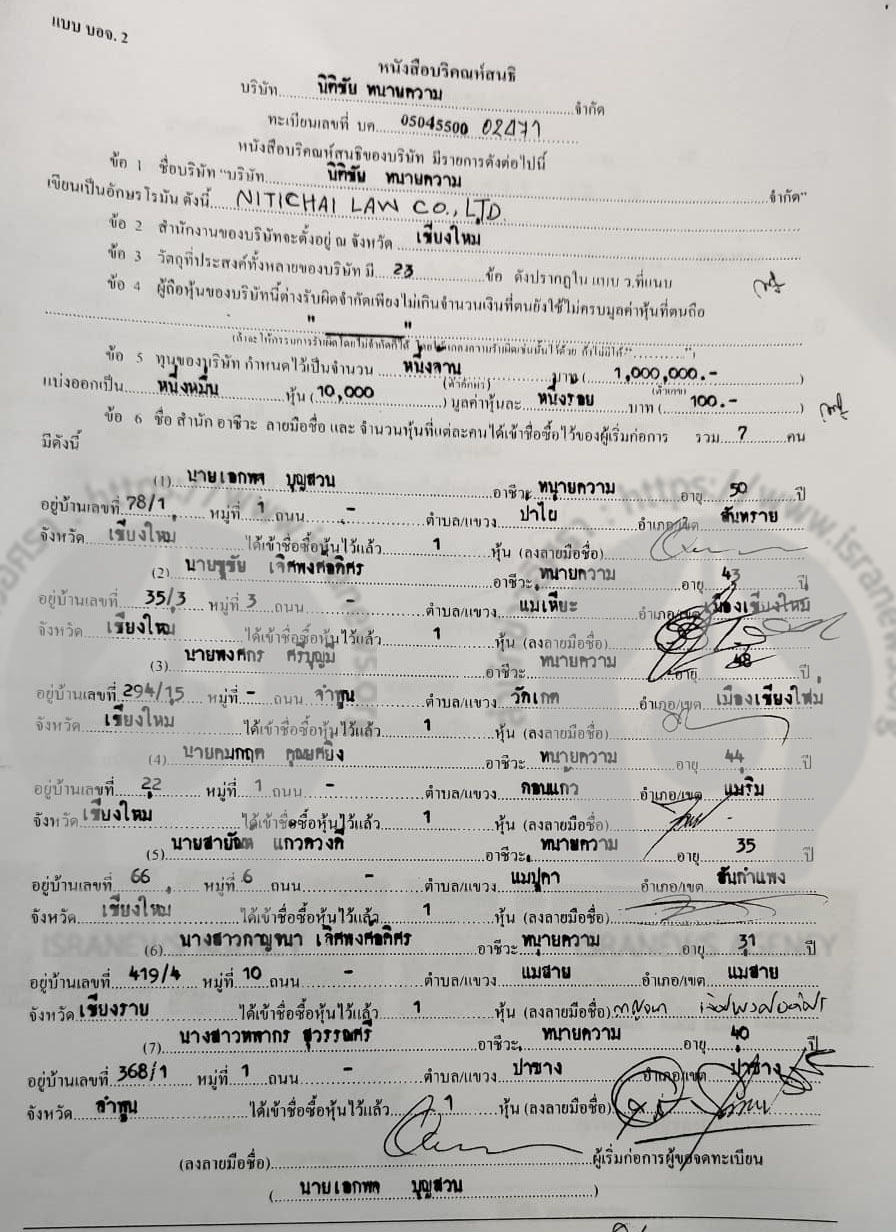 แบบ บอจ. 2
หนังสือบริคณห์สนธิ
บริษัท นิติชัย ทนายความ จำกัด
ทะเบียนเลขที่ บค. 05045500 02471
หนังสือบริคณห์สนธิของบริษัท มีรายการดังต่อไปนี้
ข้อ 1 ชื่อบริษัท "บริษัท นิติชัย ทนายความ จำกัด"
เขียนเป็นอักษรโรมัน ดังนี้ NITICHAI LAW CO., LTD.
ข้อ 2 สำนักงานของบริษัทจะตั้งอยู่ ณ จังหวัด เชียงใหม่
ข้อ 3 วัตถุที่ประสงค์ทั้งหลายของบริษัท มี 23 ข้อ ดังปรากฏใน แบบ ว.ที่แนบ
ข้อ 4 ผู้ถือหุ้นของบริษัทนี้ต่างรับผิดจำกัดเพียงไม่เกินจำนวนเงินที่ตนยังใช้ไม่ครบมูลค่าหุ้นที่ตนถือ
" "
ข้อ 5 ทุนของบริษัท กำหนดไว้เป็นจำนวน หนึ่งล้าน บาท ( 1,000,000.- )
(ตัวอักษร) (ตัวเลข)
แบ่งออกเป็น หนึ่งหมื่น หุ้น ( 10,000 ) มูลค่าหุ้นละ หนึ่งร้อย บาท ( 100.- )
ข้อ 6 ชื่อ สำนัก อาชีวะ ลายมือชื่อ และ จำนวนหุ้นที่แต่ละคนได้เข้าชื่อซื้อไว้ของผู้เริ่มก่อการ รวม 7 คน
มีดังนี้
(1) นายเอกพจ บุญสวน อาชีวะ ทนายความ อายุ 50 ปี
อยู่บ้านเลขที่ 78/1 หมู่ที่ 1 ถนน - ตำบล/แขวง ป่าไผ่ อำเภอ/เขต สันทราย
จังหวัด เชียงใหม่ ได้เข้าชื่อซื้อหุ้นไว้แล้ว 1 หุ้น (ลงลายมือชื่อ)
(2) นายชูชัย เลิศพงศ์อดิศร อาชีวะ ทนายความ อายุ 43 ปี
อยู่บ้านเลขที่ 35/3 หมู่ที่ 3 ถนน - ตำบล/แขวง แม่เหียะ อำเภอ/เขต เมืองเชียงใหม่
จังหวัด เชียงใหม่ ได้เข้าชื่อซื้อหุ้นไว้แล้ว 1 หุ้น (ลงลายมือชื่อ)
(3) นายพงศกร ศรีบุญมี อาชีวะ ทนายความ อายุ 48 ปี
อยู่บ้านเลขที่ 294/15 หมู่ที่ - ถนน ลำพูน ตำบล/แขวง วัดเกต อำเภอ/เขต เมืองเชียงใหม่
จังหวัด เชียงใหม่ ได้เข้าชื่อซื้อหุ้นไว้แล้ว 1 หุ้น (ลงลายมือชื่อ)
(4) นายคมกฤต อาชีวะ ทนายความ อายุ 44 ปี
อยู่บ้านเลขที่ 22 หมู่ที่ 1 ถนน - ตำบล/แขวง ดอนแก้ว อำเภอ/เขต แม่ริม
จังหวัด เชียงใหม่ ได้เข้าชื่อซื้อหุ้นไว้แล้ว 1 หุ้น (ลงลายมือชื่อ)
(5) นายสายัณห์ แก้วดวงดี อาชีวะ ทนายความ อายุ 35 ปี
อยู่บ้านเลขที่ 66 หมู่ที่ 6 ถนน - ตำบล/แขวง แม่ปูคา อำเภอ/เขต สันกำแพง
จังหวัด เชียงใหม่ ได้เข้าชื่อซื้อหุ้นไว้แล้ว 1 หุ้น (ลงลายมือชื่อ)
(6) นางสาวกาญจนา เลิศพงศ์อดิศร อาชีวะ ทนายความ อายุ 31 ปี
อยู่บ้านเลขที่ 419/4 หมู่ที่ 10 ถนน - ตำบล/แขวง แม่สาย อำเภอ/เขต แม่สาย
จังหวัด เชียงราย ได้เข้าชื่อซื้อหุ้นไว้แล้ว 1 หุ้น (ลงลายมือชื่อ) กาญจนา เลิศพงศ์อดิศร
(7) นางสาวทหากร สุวรรณศรี อาชีวะ ทนายความ อายุ 40 ปี
อยู่บ้านเลขที่ 368/1 หมู่ที่ 1 ถนน - ตำบล/แขวง ป่าซาง อำเภอ/เขต ป่าซาง
จังหวัด ลำพูน ได้เข้าชื่อซื้อหุ้นไว้แล้ว 1 หุ้น (ลงลายมือชื่อ)
(ลงลายมือชื่อ) ผู้เริ่มก่อการผู้ขอจดทะเบียน
( นายเอกพจ บุญสวน )